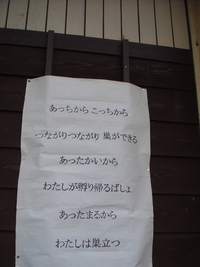 あっちから こっちから
つながりつながり 巣ができる
あったかいから
わたしが孵り帰るばしょ
あったまるから
わたしは巣立つ